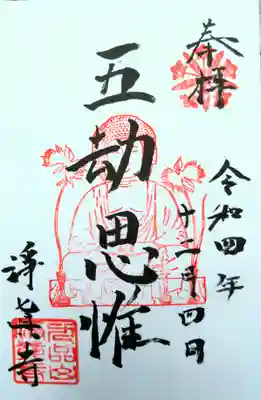 奉拝
令和四年
十二月四日
五劫思惟
浄真寺